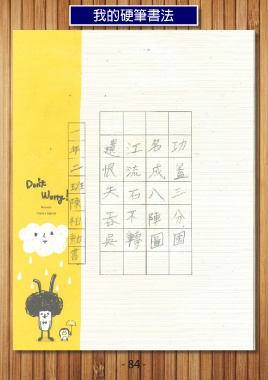 我的硬筆書法
功蓋三分國
名成八陣圖
江流石不轉
遺恨失吞吳
一年二班陳柏勳書
Don't
Worry!
- 84 -